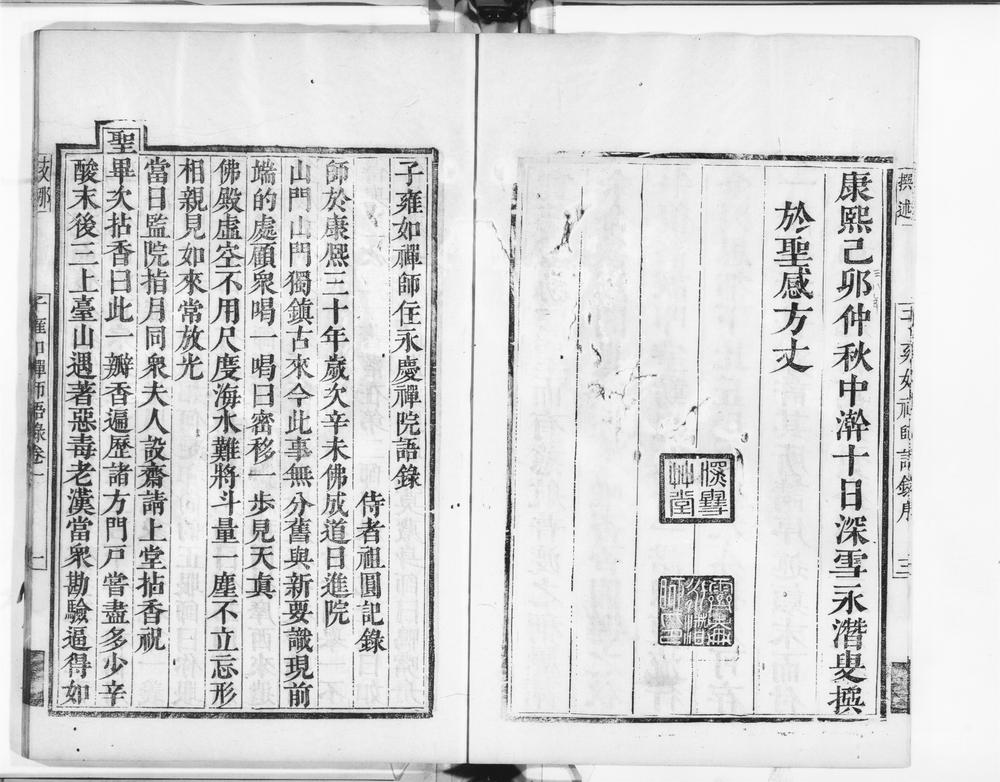 撰述
子雍如禪師語錄序
三
康熙己卯仲秋中澣十日深雪永潛叟撰
於聖感方丈
深雪
艸堂
子雍如禪師住永慶禪院語錄
侍者祖圓記錄
師於康熙三十年歲次辛未佛成道日進院
山門山門獨鎮古來今此事無分舊與新要識現前
端的處顧眾喝一喝曰密移一步見天真
佛殿虛空不用尺度海水難將斗量一塵不立忘形
相親見如來常放光
當日監院指月同眾夫人設齋請上堂拈香祝
聖畢次拈香曰此一瓣香遍歷諸方門戶嘗盡多少辛
酸末後三上臺山遇著惡毒老漢當眾勘驗逼得如
支那
子雍如禪師語錄卷一
一